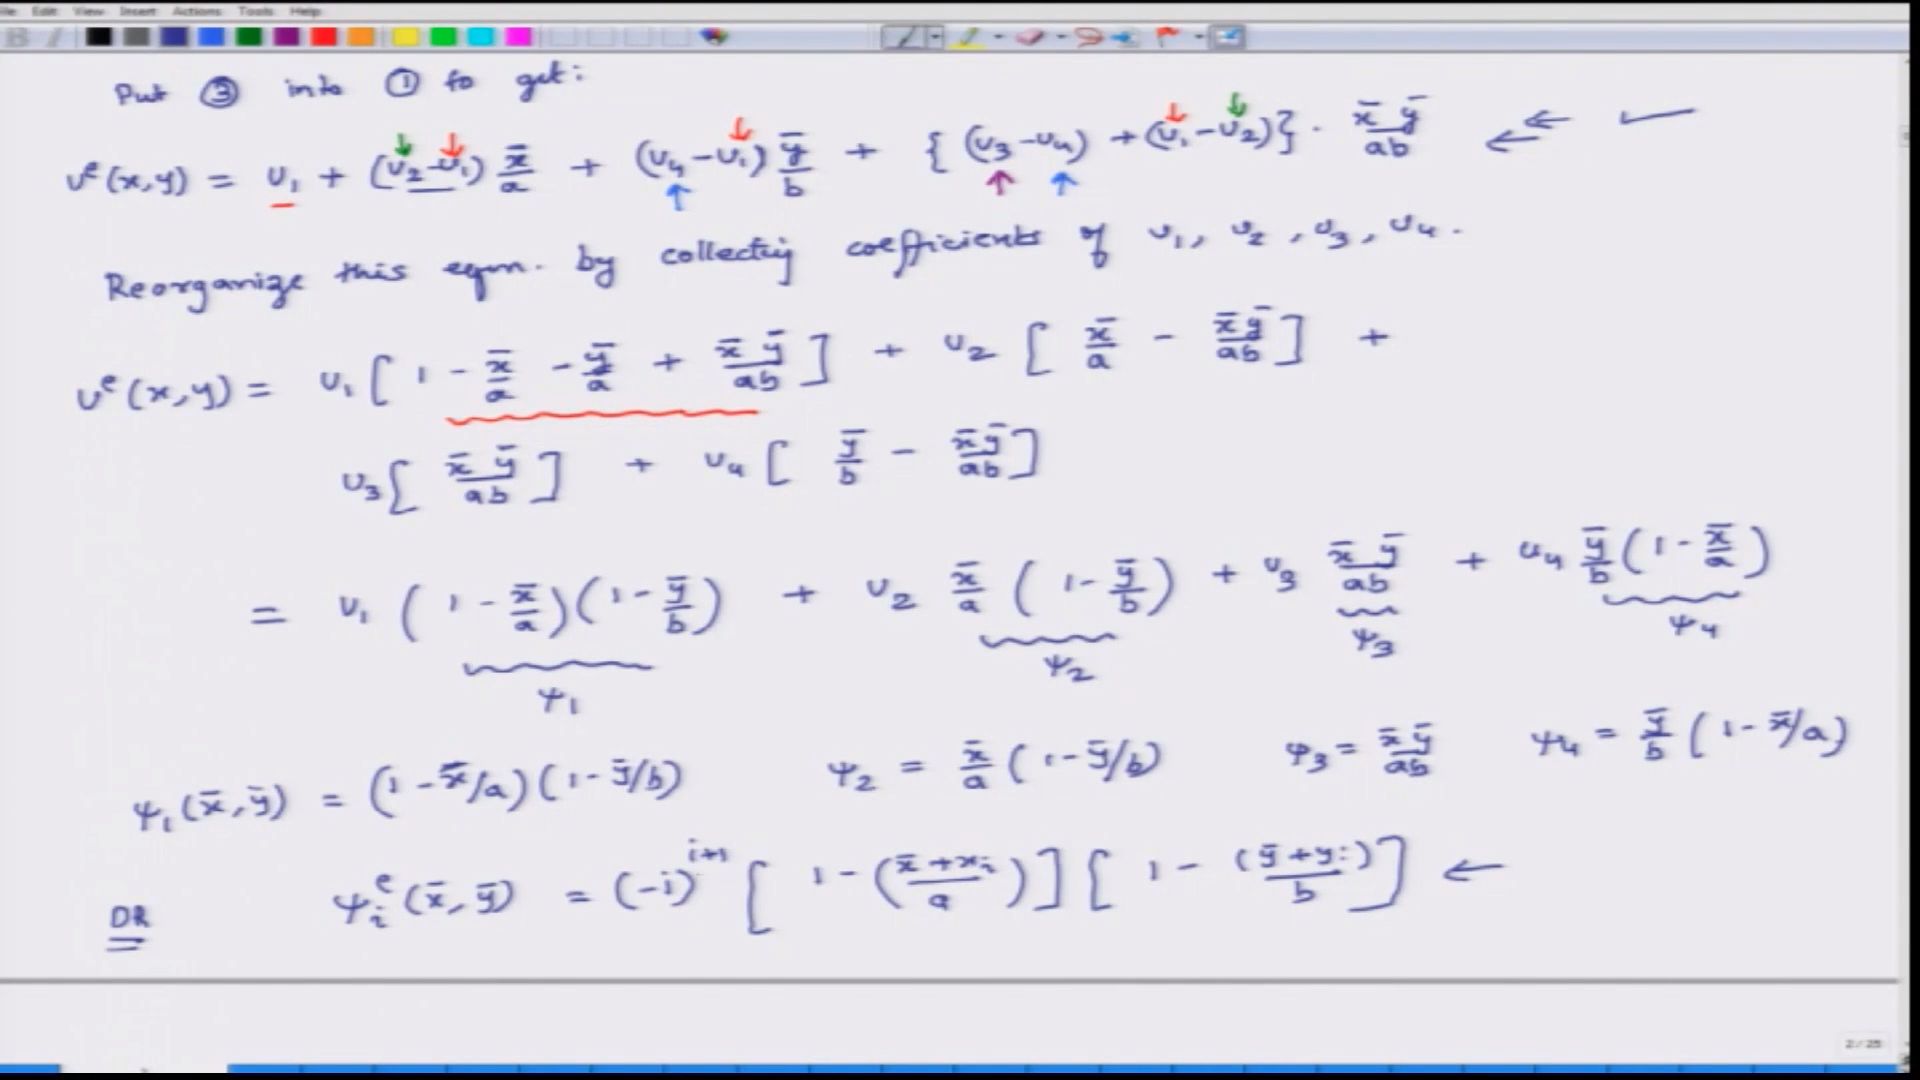 File Edit View Insert Actions Tools Help
Put ③ into ① to get:
u^e(x,y) = u₁ + (u₂-u₁) x̄/a + (u₄-u₁) ȳ/b + { (u₃-u₄) + (u₁-u₂)} · x̄ ȳ/ab
Reorganize this eqn. by collectiy coefficients of u₁, u₂, u₃, u₄.
u^e(x,y) = u₁ [ 1 - x̄/a - ȳ/a + x̄ ȳ/ab ] + u₂ [ x̄/a - x̄ȳ/ab ] +
u₃ [ x̄ ȳ/ab ] + u₄ [ ȳ/b - x̄ȳ/ab ]
= u₁ ( 1 - x̄/a)(1 - ȳ/b) + u₂ x̄/a ( 1 - ȳ/b) + u₃ x̄ ȳ/ab + u₄ ȳ/b (1 - x̄/a)
ψ₁ ψ₂ ψ₃ ψ₄
ψ₁(x̄,ȳ) = (1 - x̄/a)(1 - ȳ/b) ψ₂ = x̄/a (1 - ȳ/b) ψ₃ = x̄ȳ/ab ψ₄ = ȳ/b (1 - x̄/a)
OR ψᵢ^e(x̄,ȳ) = (-1)^{i+1} [ 1 - (x̄+xᵢ/a)] [ 1 - (ȳ+yᵢ)/b ] ←
2 / 25